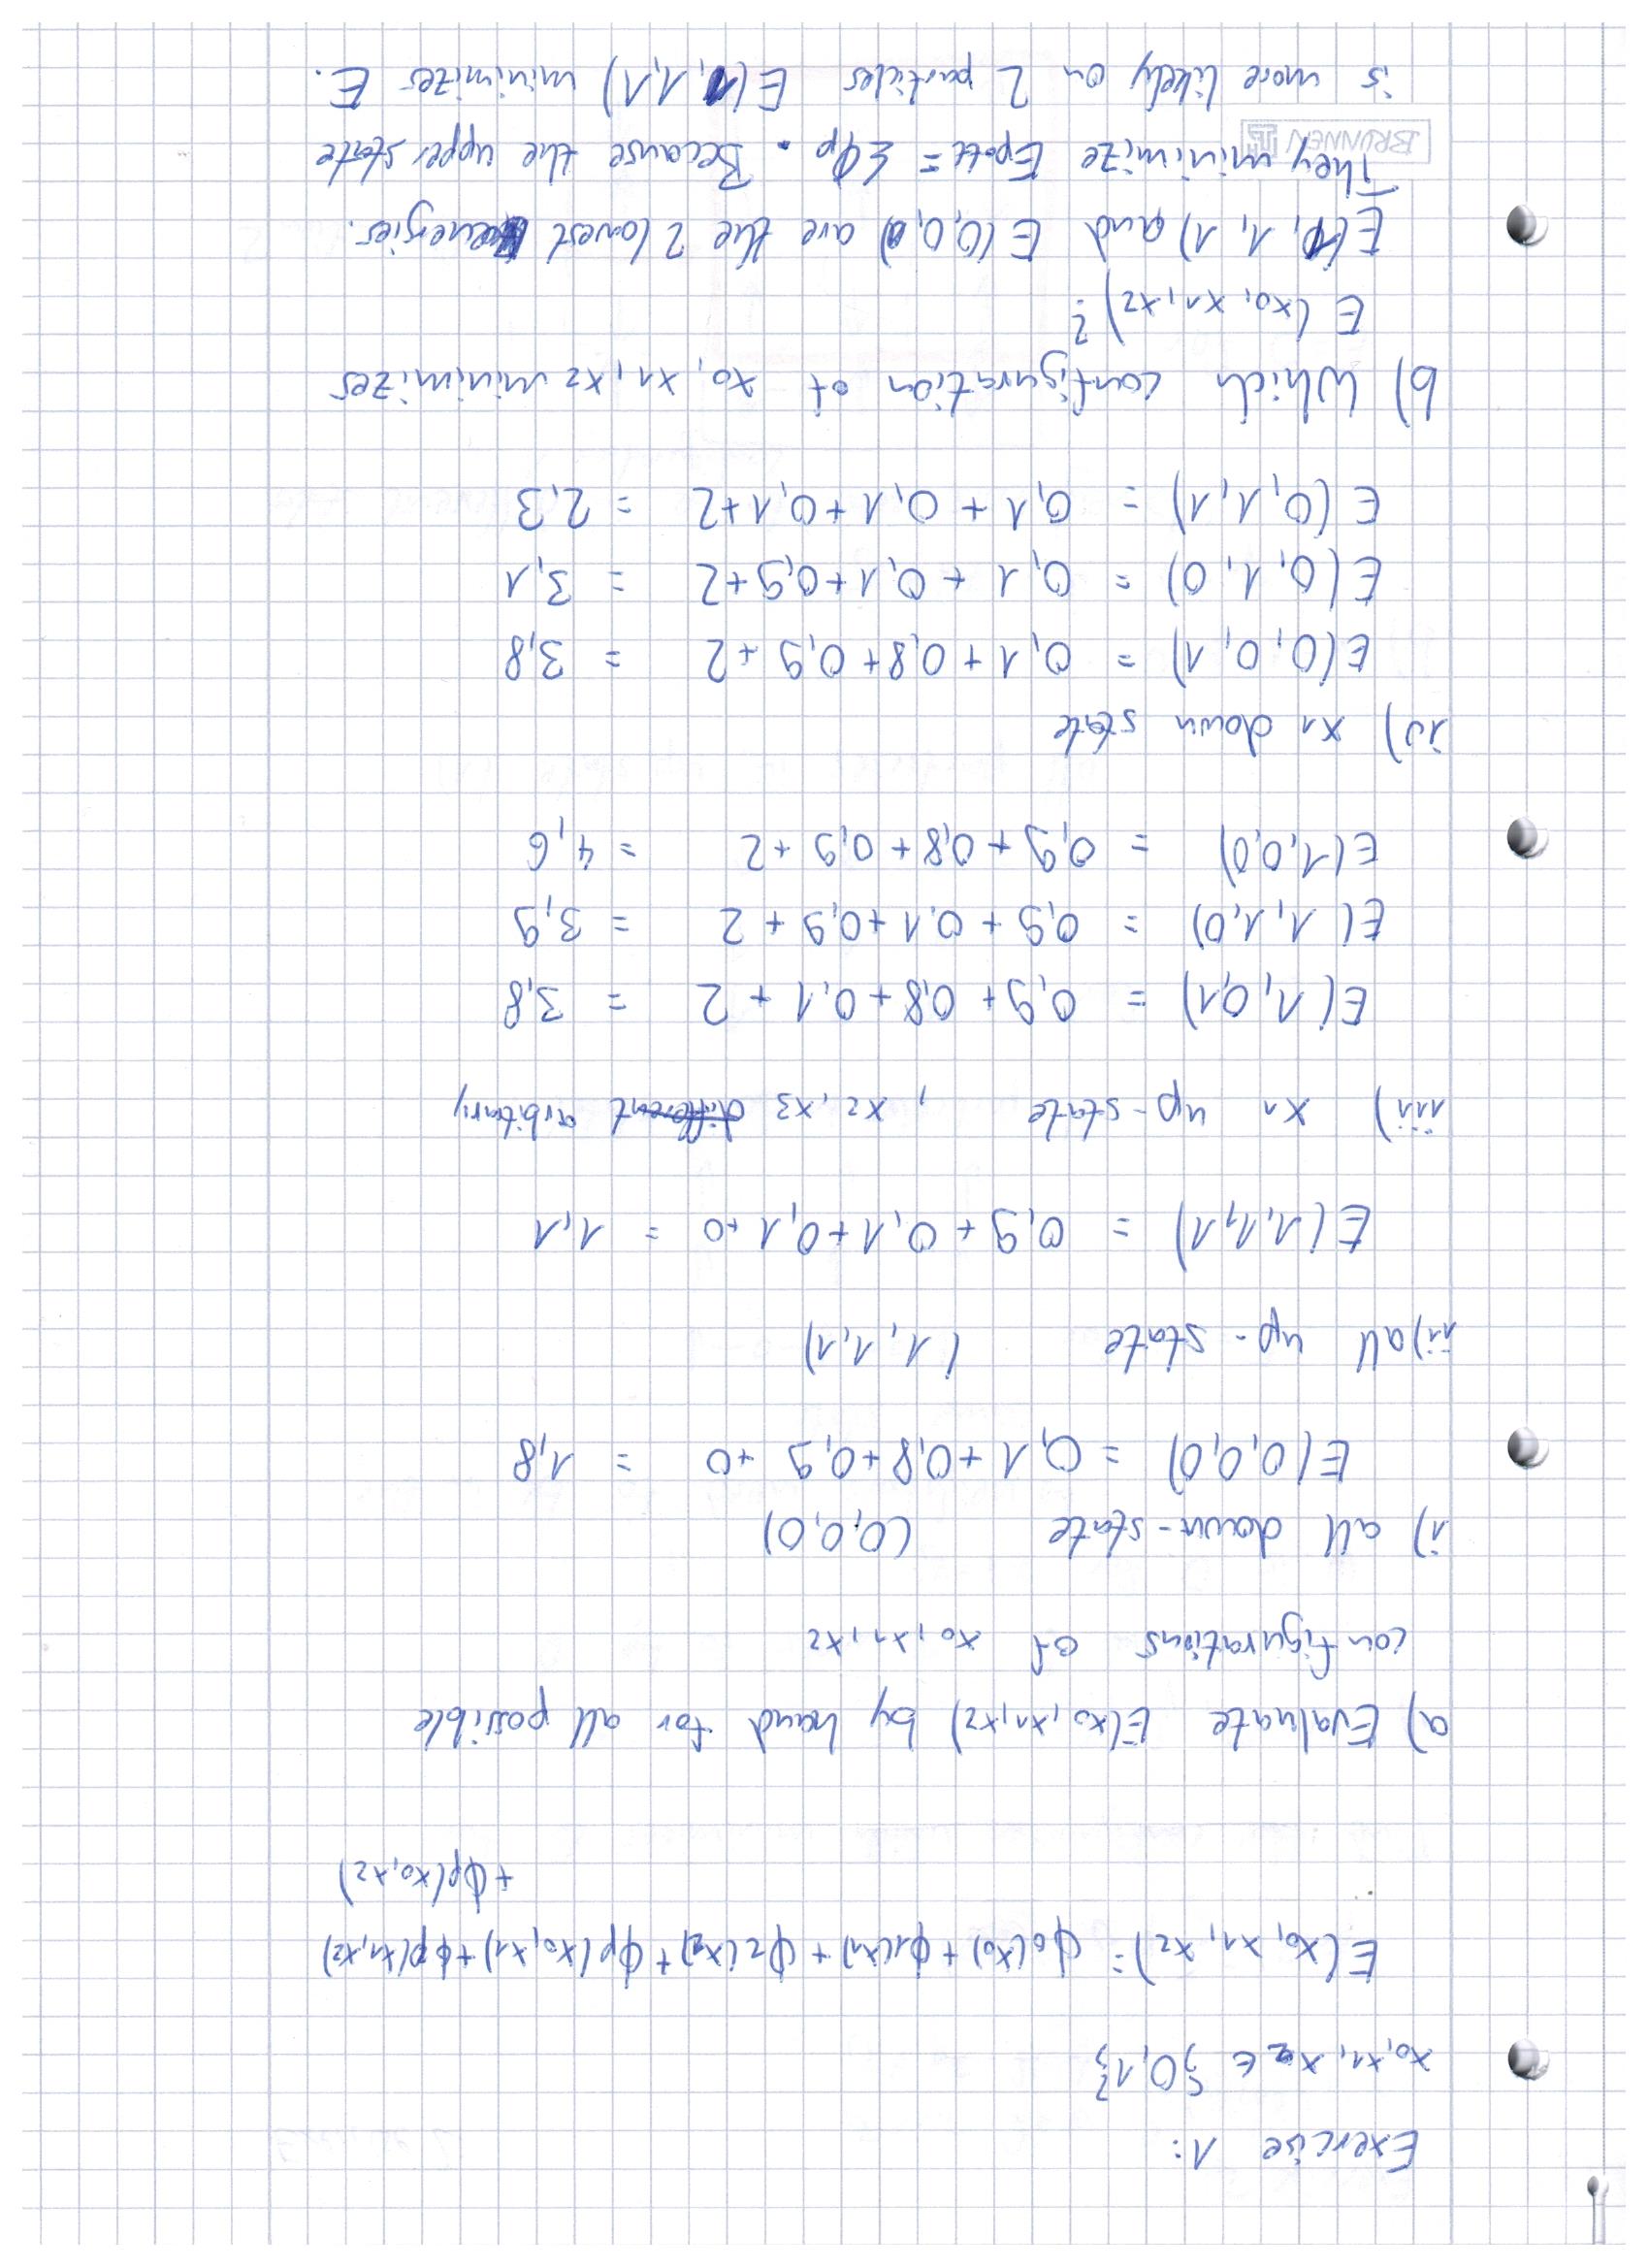 Exercise 1:
x0, x1, x2 ∈ {0,1}
E(x0, x1, x2) = ϕ0(x0) + ϕ1(x1) + ϕ2(x2) + ϕp(x0, x1) + ϕp(x1, x2)
+ ϕp(x0, x2)
a) Evaluate E(x0, x1, x2) by hand for all possible
configurations of x0, x1, x2
i) all down-state (0,0,0)
E(0,0,0) = 0,1 + 0,8 + 0,9 + 0 = 1,8
ii) all up-state (1,1,1)
E(1,1,1) = 0,9 + 0,1 + 0,1 + 0 = 1,1
iii) x1 up-state , x2, x3 different arbitrary
E(1,0,1) = 0,9 + 0,8 + 0,1 + 2 = 3,8
E(1,1,0) = 0,9 + 0,1 + 0,9 + 2 = 3,9
E(1,0,0) = 0,9 + 0,8 + 0,9 + 2 = 4,6
iv) x1 down state
E(0,0,1) = 0,1 + 0,8 + 0,9 + 2 = 3,8
E(0,1,0) = 0,1 + 0,1 + 0,9 + 2 = 3,1
E(0,1,1) = 0,1 + 0,1 + 0,1 + 2 = 2,3
b) Which configuration of x0, x1, x2 minimizes
E(x0, x1, x2)?
E(1, 1, 1) and E(0,0,0) are the 2 lowest energies.
They minimize Epott = Σϕp. Because the upper state
BRUNNEN
is more likely on 2 particles E(1,1,1) minimizes E.